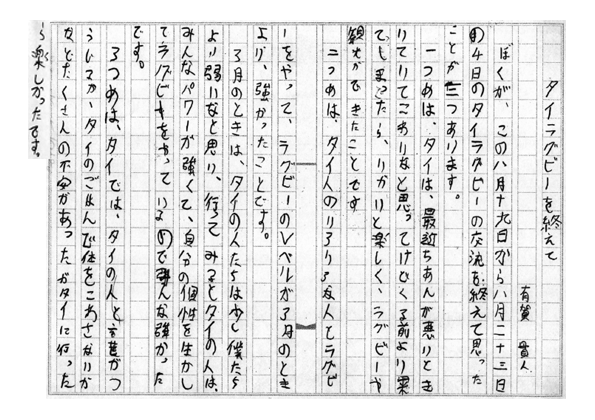 タイラグビーを終えて
有賀 貴人
ぼくが、この八月十九日から八月二十三日
の4日のタイラグビーの交流を終えて思った
ことが三つあります。
一つめは、タイは、最近ちあんが悪いとき
いていてこわいなと思ってけどくる前より楽
しかったら、いがいと楽しく、ラグビーや
観光ができたことです
二つめは、タイ人のいろいろな人とラグビ
ーをやって、ラグビーのレベルが3月のとき
より、強かったことです。
3月のときは、タイの人たちは少し僕たち
より弱いなと思い、行ってみるとタイの人は、
みんなパワーが強くて、自分の個性を生かし
てラグビーをやっているのでみんな強かった
です。
3つめは、タイでは、タイの人と言葉がつ
うじるか、タイのごはんで体をこわさないか
などたくさんの不安があったがタイに行った
ら楽しかったです。